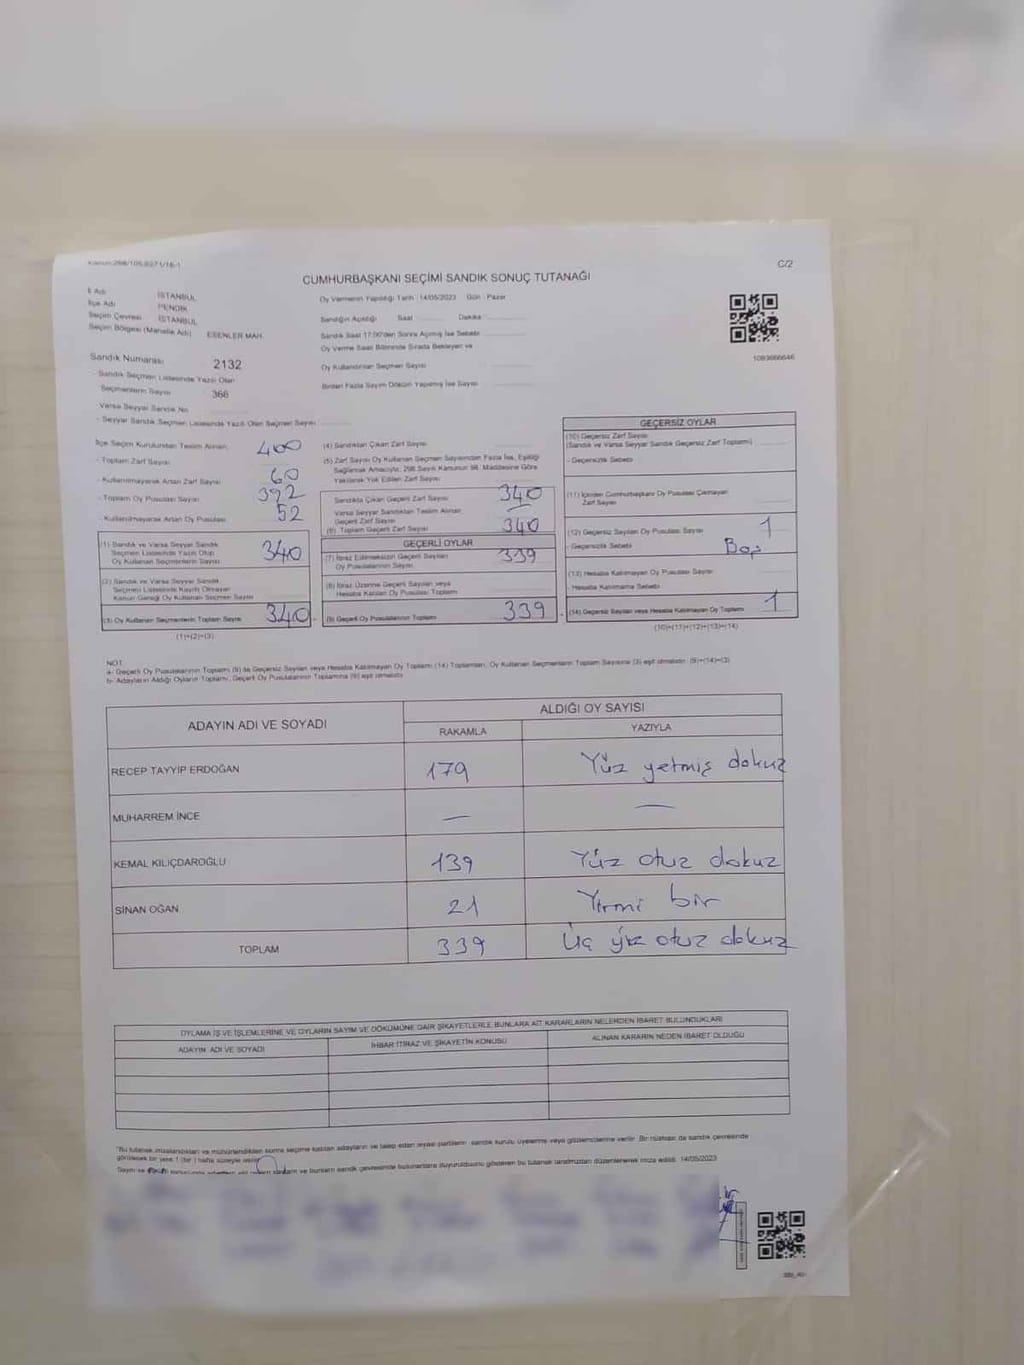 C/2
CUMHURBAŞKANI SEÇİMİ SANDIK SONUÇ TUTANAĞI
İl Adı İSTANBUL
İlçe Adı PENDİK
Seçim Çevresi İSTANBUL
Seçim Bölgesi (Mahalle Adı) ESENLER MAH.
Oy Vermenin Yapıldığı Tarih 14/05/2023 Gün Pazar
Sandığın Açıldığı Saat Dakika
Sandık Saat 17:00'den Sonra Açılmış İse Sebebi
Oy Verme Saati Bitiminde Sırada Bekleyen ve
Oy Kullandırılan Seçmen Sayısı
Birden Fazla Sayım Döküm Yapılmış İse Sayısı
1093666646
Sandık Numarası 2132
- Sandık Seçmen Listesinde Yazılı Olan
Seçmenlerin Sayısı 366
Varsa Seyyar Sandık No
- Seyyar Sandık Seçmen Listesinde Yazılı Olan Seçmen Sayısı
İlçe Seçim Kurulundan Teslim Alınan
- Toplam Zarf Sayısı 400
- Kullanılmayarak Artan Zarf Sayısı 60
- Toplam Oy Pusulası Sayısı 392
- Kullanılmayarak Artan Oy Pusulası 52
(1) Sandık ve Varsa Seyyar Sandık
Seçmen Listesinde Yazılı Olup
Oy Kullanan Seçmenlerin Sayısı 340
(2) Sandık ve Varsa Seyyar Sandık
Seçmen Listesinde Kayıtlı Olmayan
Kanun Gereği Oy Kullanan Seçmen Sayısı
(3) Oy Kullanan Seçmenlerin Toplam Sayısı 340
(1)+(2)=(3)
(4) Sandıktan Çıkan Zarf Sayısı
(5) Zarf Sayısı Oy Kullanan Seçmen Sayısından Fazla İse, Eşitliği
Sağlamak Amacıyla, 298 Sayılı Kanunun 98. Maddesine Göre
Yakılarak Yok Edilen Zarf Sayısı
Sandıkta Çıkan Geçerli Zarf Sayısı 340
Varsa Seyyar Sandıktan Teslim Alınan
Geçerli Zarf Sayısı
(6) Toplam Geçerli Zarf Sayısı 340
GEÇERLİ OYLAR
(7) İtiraz Edilmeksizin Geçerli Sayılan
Oy Pusulalarının Sayısı 339
(8) İtiraz Üzerine Geçerli Sayılan veya
Hesaba Katılan Oy Pusulası Toplamı
(9) Geçerli Oy Pusulalarının Toplamı 339
GEÇERSİZ OYLAR
(10) Geçersiz Zarf Sayısı
(Sandık ve Varsa Seyyar Sandık Geçersiz Zarf Toplamı)
- Geçersizlik Sebebi
(11) İçinden Cumhurbaşkanı Oy Pusulası Çıkmayan
Zarf Sayısı
(12) Geçersiz Sayılan Oy Pusulası Sayısı 1
- Geçersizlik Sebebi Boş
(13) Hesaba Katılmayan Oy Pusulası Sayısı
- Hesaba Katılmama Sebebi
(14) Geçersiz Sayılan veya Hesaba Katılmayan Oy Toplamı 1
(10)+(11)+(12)+(13)=(14)
NOT
a- Geçerli Oy Pusulalarının Toplamı (9) ile Geçersiz Sayılan veya Hesaba Katılmayan Oy Toplamı (14) Toplamları, Oy Kullanan Seçmenlerin Toplam Sayısına (3) eşit olmalıdır. (9)+(14)=(3)
b- Adayların Aldığı Oyların Toplamı, Geçerli Oy Pusulalarının Toplamına (9) eşit olmalıdır.
ADAYIN ADI VE SOYADI ALDIĞI OY SAYISI
RAKAMLA YAZIYLA
RECEP TAYYİP ERDOĞAN 179 Yüz yetmiş dokuz
MUHARREM İNCE — —
KEMAL KILIÇDAROĞLU 139 Yüz otuz dokuz
SİNAN OĞAN 21 Yirmi bir
TOPLAM 339 Üç yüz otuz dokuz
OYLAMA İŞ VE İŞLEMLERİNE VE OYLARIN SAYIM VE DÖKÜMÜNE DAİR ŞİKAYETLERLE BUNLARA AİT KARARLARIN NELERDEN İBARET BULUNDUKLARI
ADAYIN ADI VE SOYADI İHBAR İTİRAZ VE ŞİKAYETİN KONUSU ALINAN KARARIN NEDEN İBARET OLDUĞU
"Bu tutanak imzalandıktan ve mühürlendikten sonra seçime katılan adayların ve talep eden siyasi partilerin sandık kurulu üyelerine veya gözlemcilerine verilir. Bir nüshası da sandık çevresinde
görülecek bir yere 1 (bir) hafta süreyle asılır.
ve bunların sandık çevresinde bulunanlara duyurulduğunu gösteren bu tutanak tarafımızdan düzenlenerek imza edildi. 14/05/2023